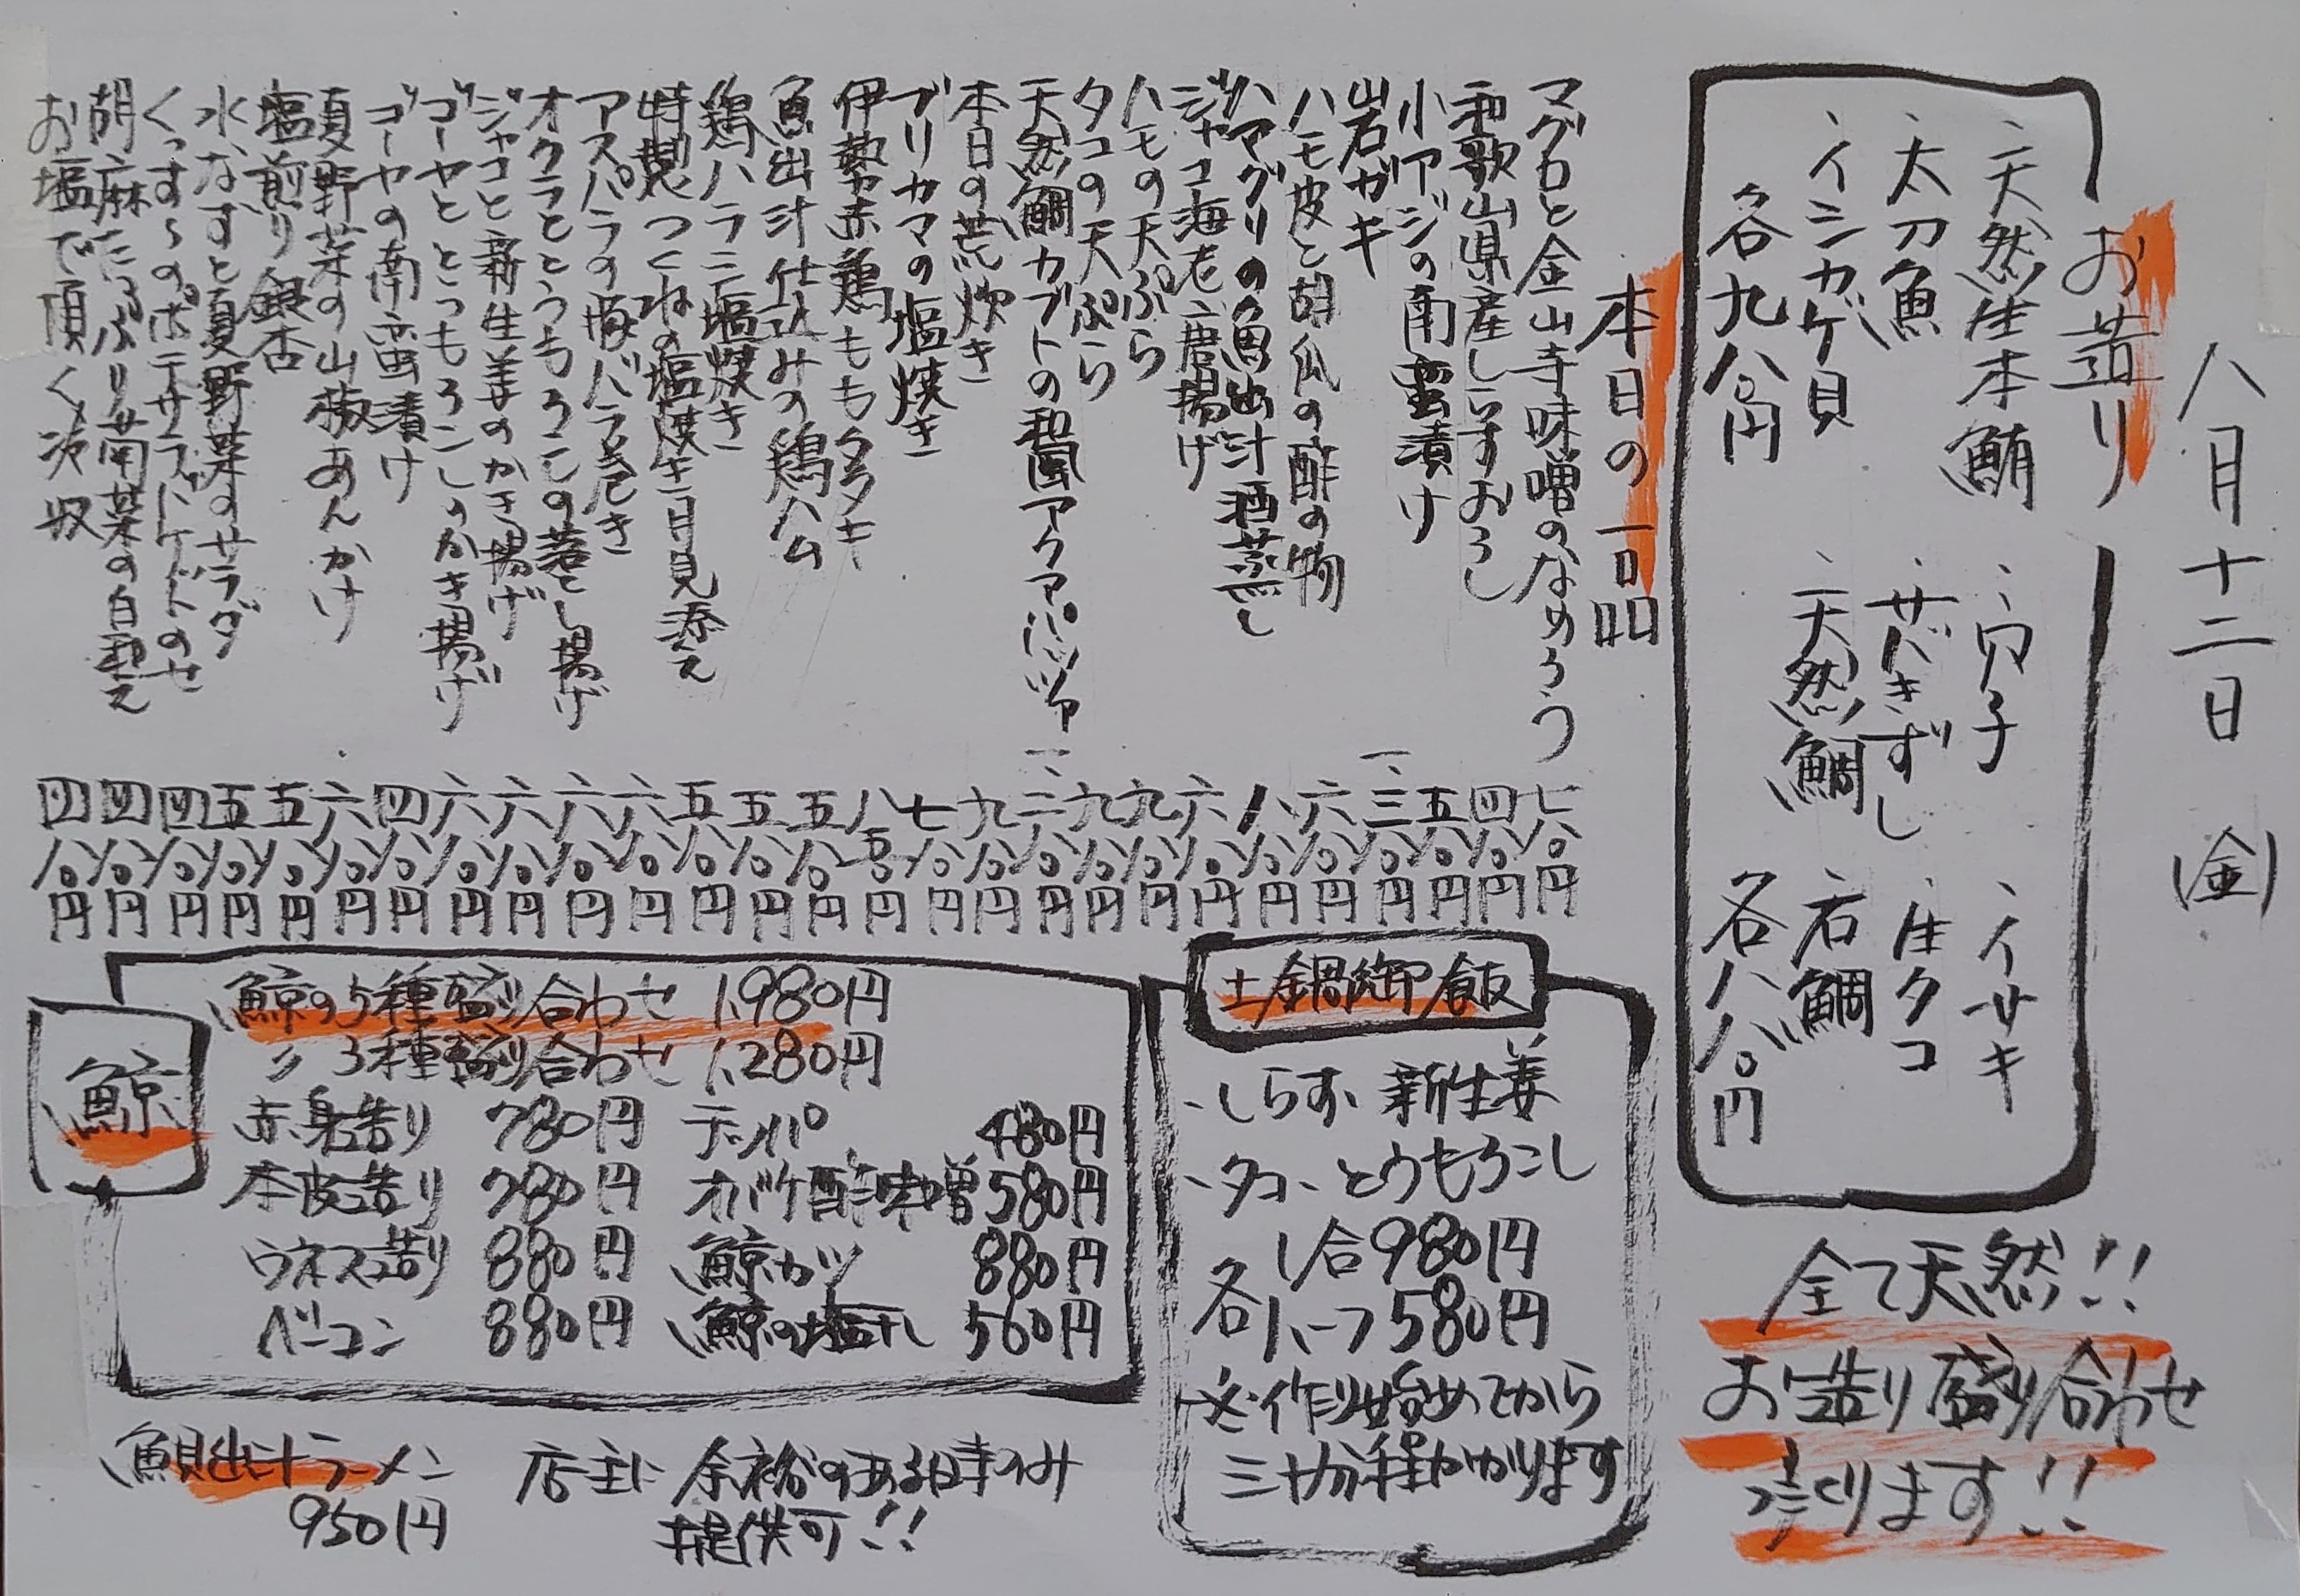 八月十二日(金)
お造り
・天然生本鮪
・太刀魚
・イシガケ貝
各九八〇円
・穴子
・サバきずし
・天然鯛
・イサキ
・生タコ
・石鯛
各八八〇円
全て天然!!
お造り盛り合わせ
承ります!!
本日の一品
マグロと金山寺味噌のなめろう 七八〇円
和歌山県産しらすおろし 四八〇円
小アジの南蛮漬け 五八〇円
岩ガキ 一、三八〇円
ハモ皮と胡瓜の酢の物 六八〇円
ハマグリの魚出汁酒蒸し 八八〇円
シャコ海老唐揚げ 六八〇円
ハモの天ぷら 九八〇円
タコの天ぷら 九八〇円
天然鯛カブトの和風アクアパッツァ 一、二八〇円
本日の荒炊き 九八〇円
ブリカマの塩焼き 七八〇円
伊勢赤鶏ももタタキ 八五〇円
魚出汁仕込みの鶏ハム 五八〇円
鶏ハラミ塩焼き 五八〇円
特製つくねの塩焼き月見添え 五八〇円
アスパラの豚バラ巻き 六八〇円
オクラととうもろこしの落とし揚げ 六八〇円
ジャコと新生姜のかき揚げ 六八〇円
ゴーヤととうもろこしのかき揚げ 六八〇円
ゴーヤの南蛮漬け 四八〇円
夏野菜の山椒あんかけ 六八〇円
塩煎り銀杏 五八〇円
水なすと夏野菜のサラダ 五八〇円
くっすんのポテサラバケットのせ 四八〇円
胡麻たっぷり菊菜の白和え 四八〇円
お塩で頂く冷奴 四八〇円
土鍋御飯
・しらす、新生姜
・タコ、とうもろこし
各
1合980円
ハーフ580円
※作り始めてから
三十分程かかります
鯨
鯨の5種盛り合わせ 1,980円
〃 3種盛り合わせ 1,280円
赤身造り 780円 テッパ 480円
本皮造り 780円 オバケ酢味噌 580円
ウネス造り 880円 鯨カツ 880円
ベーコン 880円 鯨の塩干し 560円
魚貝出汁ラーメン
950円
店主に余裕のある時のみ
提供可!!